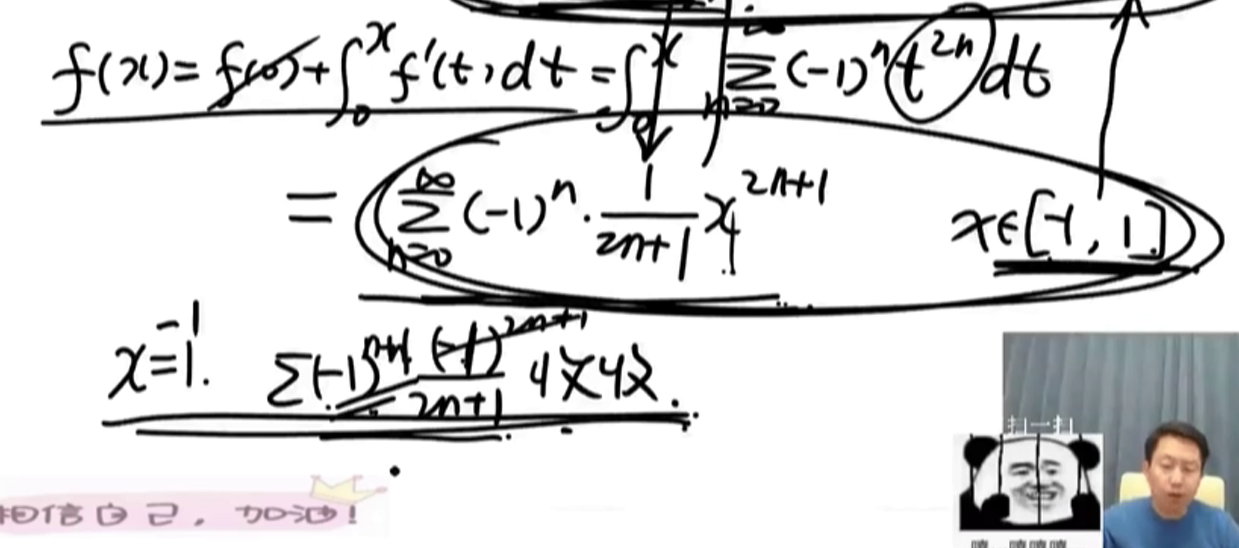 f(x) = f(0) + ∫₀ˣ f'(t) dt = ∫₀ˣ ∑ₙ₌₀^∞ (-1)ⁿ t²ⁿ dt
= ∑ₙ₌₀^∞ (-1)ⁿ · 1/(2n+1) x²ⁿ⁺¹ x∈[-1, 1]
-1
x=1. ∑(-1)ⁿ⁺¹ (-1)²ⁿ⁺¹/(2n+1) 收敛.
扫一扫
相信自己，加油！
嘿 嘿嘿嘿